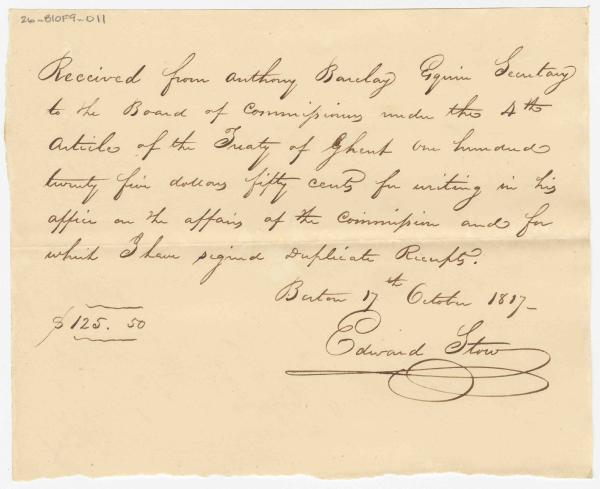 26-B10F9-011
Received from Anthony Barclay Esquire Secretary
to the Board of Commissioners under the 4th
Article of the Treaty of Ghent one hundred
twenty five dollars fifty cents for writing in his
office on the affairs of the Commission and for
which I have signed Duplicate Receipts.
Boston 17th October 1817_
$125. 50
Edward Stow